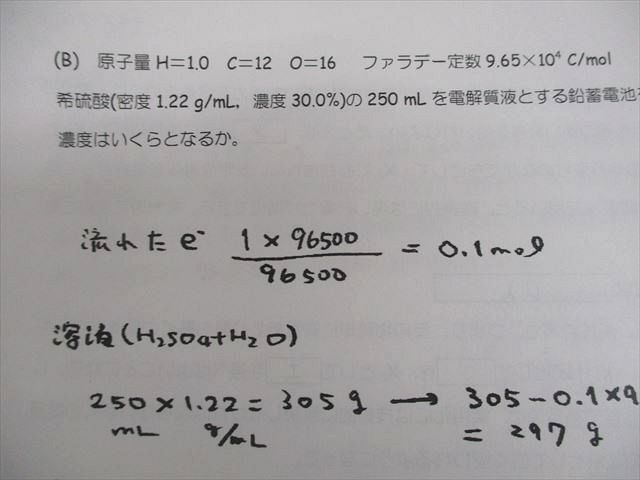 (B) 原子量 H=1.0 C=12 O=16 ファラデー定数 9.65×10⁴ C/mol
希硫酸(密度 1.22 g/mL, 濃度 30.0%)の 250 mL を電解質液とする鉛蓄電池を
濃度はいくらとなるか。
流れた e⁻ 1 × 96500 / 96500 = 0.1 mol
溶液 (H₂SO₄+H₂O)
250 × 1.22 = 305 g → 305 − 0.1×9
mL g/mL = 297 g